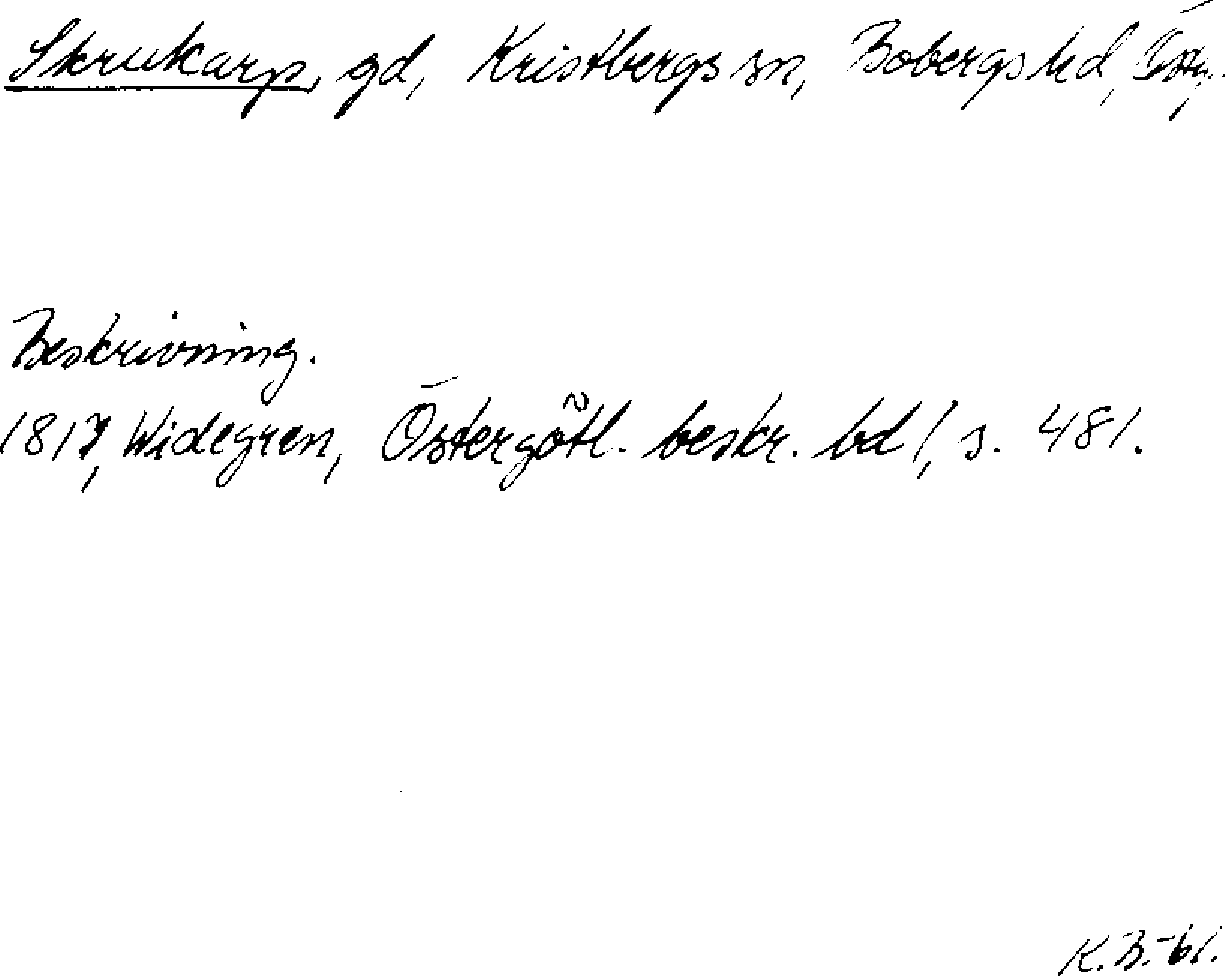 Skrukarp, gd, Kristbergs sn, Bobergs hd, Östg.
Beskrivning.
1817, Widegren, Östergötl. beskr. bd 1, s. 481.
K.B.-bl.